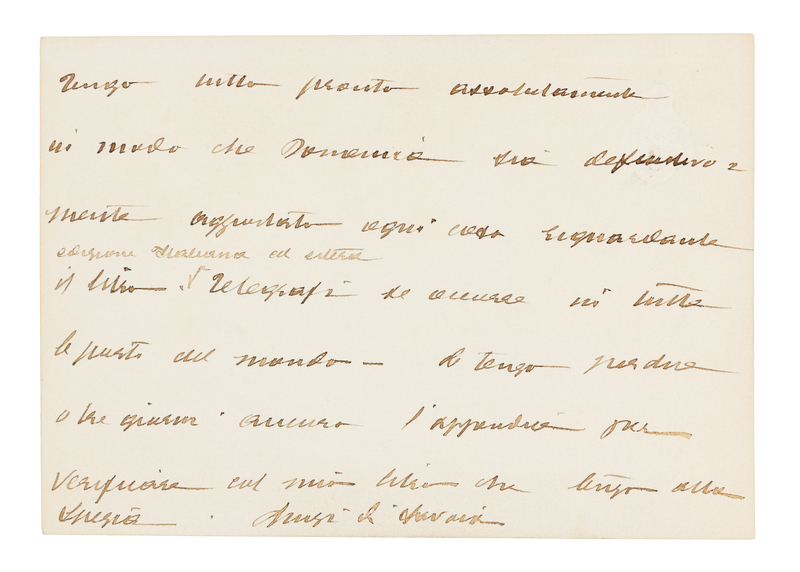 Tengo tutto pronto assolutamente
in modo che Domenica sia definitiva=
mente aggiustato ogni cosa riguardante
edizione Italiana ed estera
il libro. √ Telegrafi se occorre in tutte
le parti del mondo — Io tengo per due
o tre giorni ancora l'appendice per
verificare col mio libro che tengo alla
Spezia. Luigi di Savoia